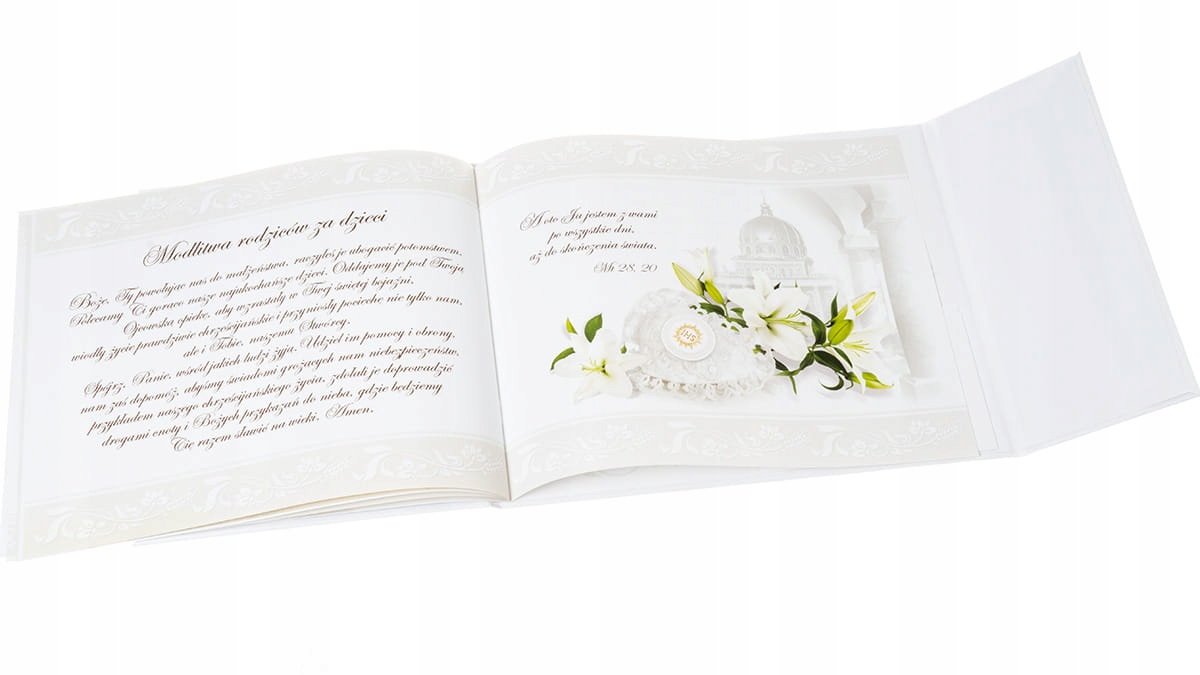 Modlitwa rodziców za dzieci
Boże, Ty powołując nas do małżeństwa, raczyłeś je ubogacić potomstwem.
Polecamy Ci gorąco nasze najukochańsze dzieci. Oddajemy je pod Twoją
Ojcowską opiekę, aby wzrastały w Twej świętej bojaźni,
wiodły życie prawdziwie chrześcijańskie i przyniosły pociechę nie tylko nam,
ale i Tobie, naszemu Stwórcy.
Spójrz, Panie, wśród jakich ludzi żyją. Udziel im pomocy i obrony,
nam zaś dopomóż, abyśmy świadomi grożących nam niebezpieczeństw,
przykładem naszego chrześcijańskiego życia, zdołali je doprowadzić
drogami cnoty i Bożych przykazań do nieba, gdzie będziemy
Cię razem sławić na wieki. Amen.
A oto Ja jestem z wami
po wszystkie dni,
aż do skończenia świata.
Mt 28, 20
IHS